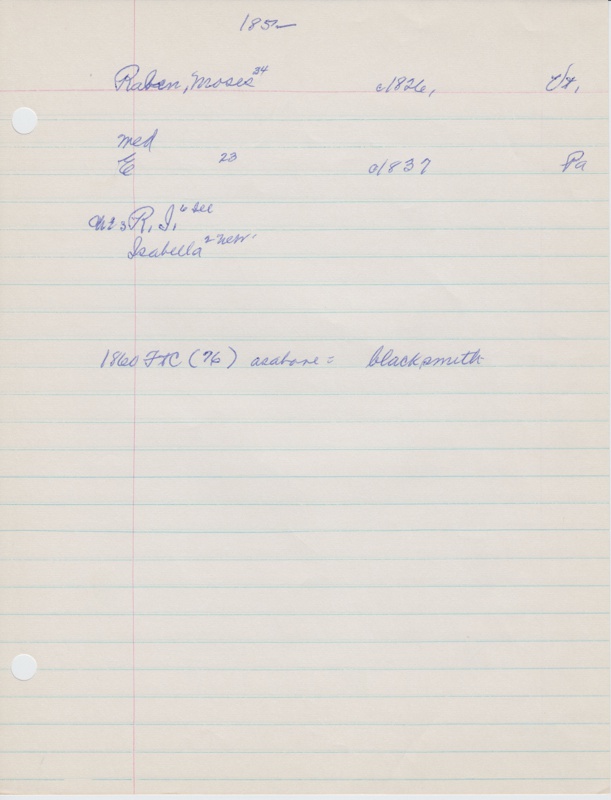 185
Raben, Moses 34 c1826, Vt,
med
E 23 c1837 Pa
R. I. 6 Ill
Isabella 2 New
1860 FtC (76) as above = blacksmith